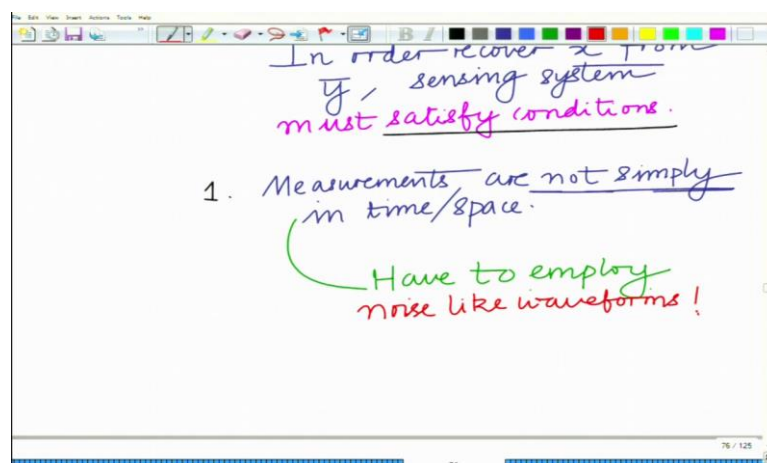 File Edit View Insert Actions Tools Help
In order recover x̄ from
ȳ, sensing system
must satisfy conditions.
1. Measurements are not simply
in time/space.
Have to employ
noise like waveforms!
76 / 125